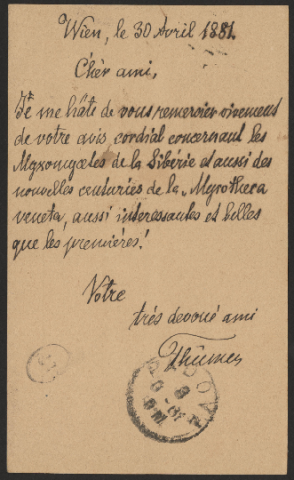 Wien, le 30 Avril 1881.
Chèr ami,
Je me hâte de vous remercier vivement
de votre avis cordial concernant les
Myxomycetes de la Sibérie et aussi des
nouvelles centuries de la „Mycotheca
veneta, aussi interessantes et belles
que les premières!
Votre
trés devoué ami
Thümen
PADOVA